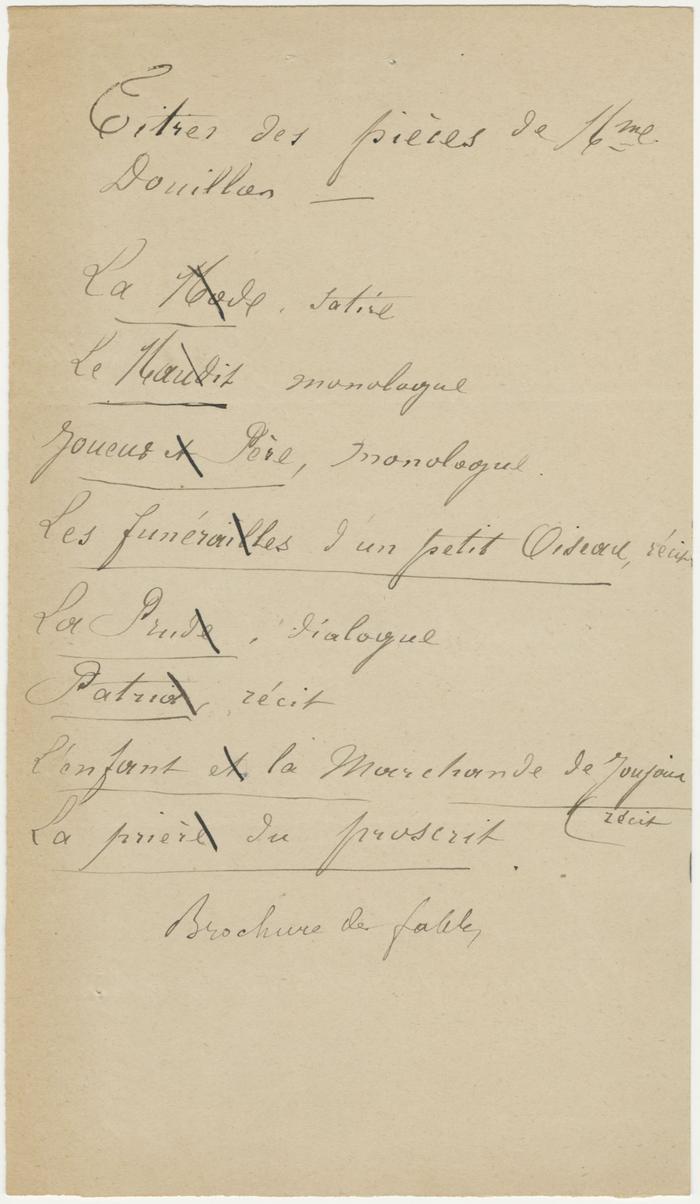 Titres des pièces de Mme
Douillon —
La Mode, satire
Le Maudit monologue
Joueur et Père, monologue.
Les funérailles d'un petit Oiseau, récit
La Prude, dialogue
Patria, récit
L'enfant et la Marchande de Joujoux
(récit
La prière du proscrit
Brochure de fables